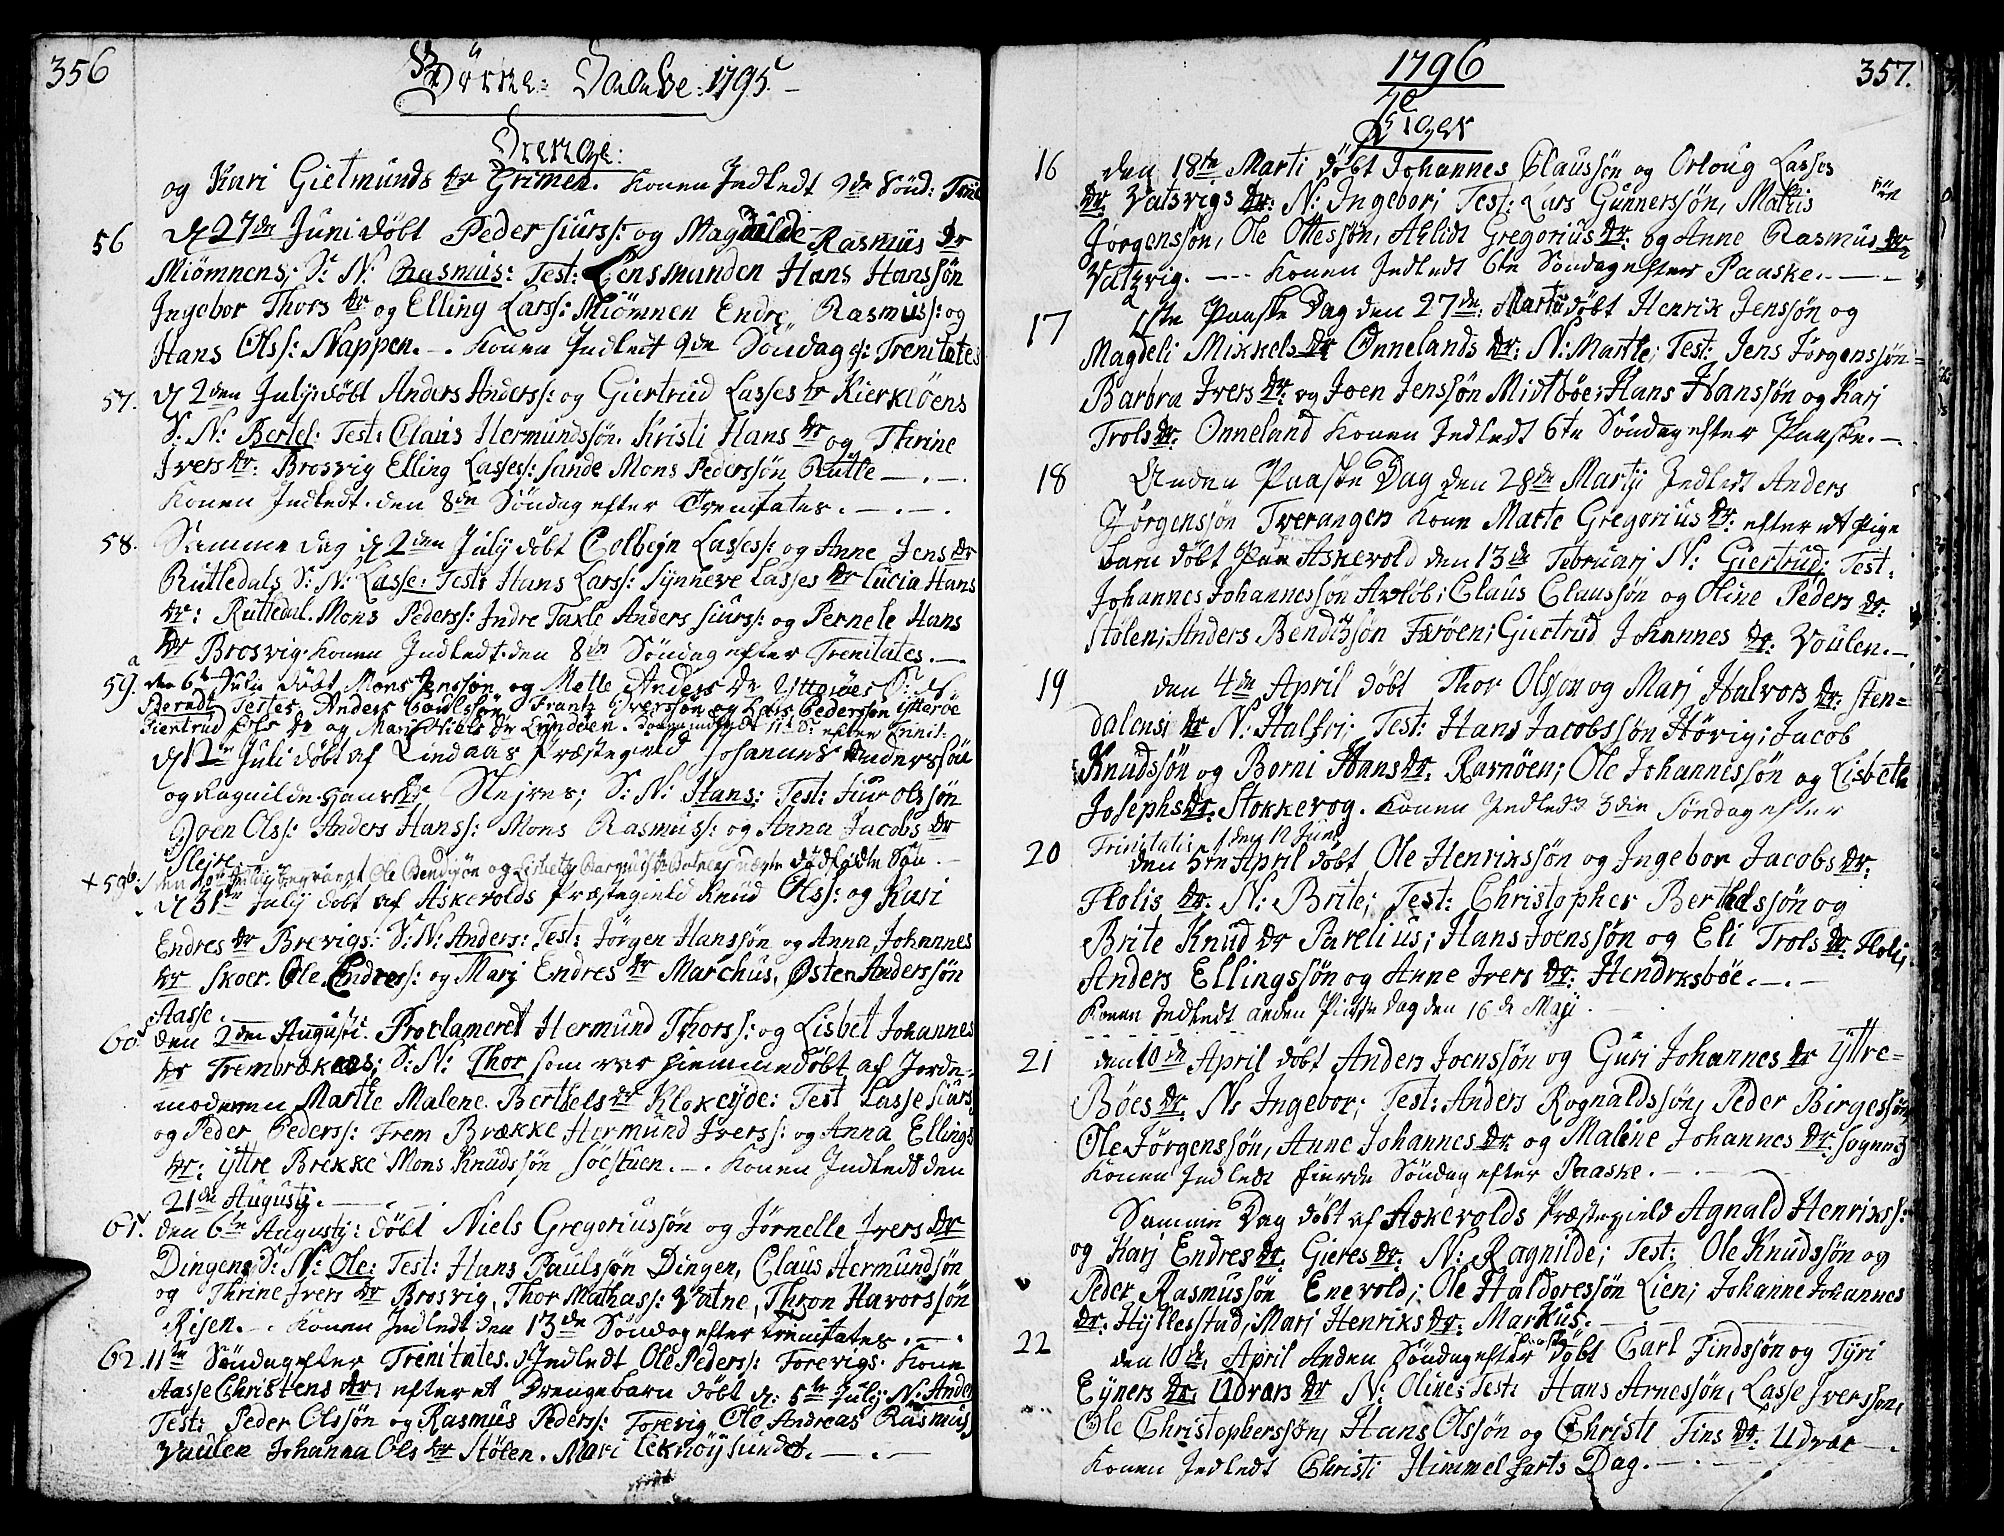 356
Börne: Daabe: 1795.
Drenge:
og Kari Gietmunds dr Grimen. Konen Indledt 9de Sönd: Trin
56 d 27de Juni döbt Peder siurss: og Magdilde Rasmus dr
Miömnens; S: N: Rasmus: Test: Lensmanden Hans Hanssön
Ingebor Thors dr og Elling Larss: Miömnen Endre Rasmuss: og
Hans Olss: Nappen. Konen Indledt 9de Söndag e: Trenitates
57. d 2den July döbt Anders Anderss: og Giertrud Lasses dr Kierkeöens
S: N: Bertel: Test: Claus Hermundssön. Kristi Hans dr og Thrine
Ivers dr: Brosvig Elling Lassess: sande Mons Pederssön Rutle
Konen Indledt den 8de Söndag efter Trenitates.
58. Samme dag d 2den July döbt Colbejn Lassess: og Anne Jens dr
Rutledals S: N: Lasse: Test: Hans Larss: Synneve Lasses dr Lucia Hans
dr: Rutledal. Mons Pederss: Indre Takle Anders siurss: og Pernele Hans
dr Brosvig. Konen Indledt den 8de Söndag efter Trenitates.
a
59. den 6te Julii döbt Mons Jenssøn og Mette Anders dr Ytteröes S: N:
Berndt Testes Anders Poulssön Frantz Iverssøn og Lars Pederssøn ytteröe
Giertrud dr og Mari Niels dr Lyndöen. Konen indledt 11te S: efter Trinit:
d 12te Juli döbt af Lindaas Præstegield Johannes Anderssön
og Ragnilde Hans dr Slejres; S: N: Hans: Test: siur olssön
Joen Olss: Anders Hanss: Mons Rasmuss: og Anna Jacobs dr
Slejre.
+59b. den Julii begravet Ole Bendixøn og Lisbeth dödfödte Sön.
d 31te July döbt af Askevolds Præstegield Knud Olss: og Kari
Endres dr Brevigs: S: N: Anders: Test: Jörgen Hanssön og Anna Johannes
dr Skoer. Ole Endress: og Marj Endres dr Marchus, Østen Anderssön
Aasse.
60. den 2den Augusti. Proclameret Hermund Thorss: og Lisbet Johannes
dr Frembrækes; S: N: Thor som var hiemmedöbt af Jorde-
moderen Marthe Malene Berthels dr Klokeyde: Test Lasse siurs
og Peder Pederss: Frem Brække Hermund Iverss: og Anna Ellings
dr: yttre Brekke Mons Knudssön söestuen. Konen Indledt den
21de Augusti.
61. den 6te Augusty: döbt Niels Gregoriussön og Jörnelle Ivers dr
Dingens S: N: Ole: Test: Hans Paulssön Dingen, Claus Hermundsön
og Thrine Ivers dr Brosvig, Thor Mathass: Vatne, Thron Havorssön
Risen. Konen Indledt den 13de Söndag efter Trenitates.
62. 11te Söndag efter Trenitates. Indledt Ole Pederss: Forevigs. Kone
Aasse Christens dr: efter et Drengebarn döbt d: 5te July N: Anders
Test: Peder Olssön og Rasmus Pederss: Forevig Ole Andreas Rasmuss
Vaulen Johanna Ols dr Stölen. Mari Leknöysundet.
357.
1796
Piger
16 den 18te Marti döbt Johannes Claussön og Orloug Lasses
dr: Vatsvigs dr: N: Ingebor; Test: Lars Gunnerssön, Mathis
Jörgenssön, Ole Ottessön, Ablidt Gregorius dr: og Anne Rasmus dr:
Vatzvig. Konen Indledt 6te Söndag efter Paaske.
17 1ste Paaske Dag den 27de Marti döbt Henrik Jenssön og
Magdeli Mikkels dr Onnelands dr: N: Martte; Test: Jens Jörgenssön
Barbra Ivers dr: og Joen Jenssön Midtböe; Hans Hanssön og Karj
Trols dr: Onneland Konen Indledt 6te Söndag efter Paaske.
18 Anden Paaske Dag den 28de Martij Indledt Anders
Jörgenssön Tverangers Kone Marte Gregorius dr: efter et Pige
barn döbt paa Askevold den 13de Februarj N: Giertrud: Test:
Johannes Johannessön Avlöb; Claus Claussön og Oline Peders dr:
stölen; Anders Bendixsön Færöen; Giertrud Johannes dr: Voulen.
19 den 4de April döbt Thor Olsson og Marj Halvors dr: sten-
dalens; dr N: Halfri; Test: Hans Jacobssön Hövig; Jacob
Knudssön og Borni Hans dr: Ravnöen; Ole Johannessön og Lisbeth
Josephs dr: Stokkevog. Konen Indledt 3die Söndag efter
Trinitatis, den 12 Juni
20 den 5te April döbt Ole Henrikssön og Ingebor Jacobs dr:
Flolis dr: N: Brite; Test: Christopher Berthelssön og
Brite Knud dr Parelius; Hans Joenssön og Eli Trols dr: Floli;
Anders Ellingssön og Anne Ivers dr: Hendrksböe.
Konen Indledt anden Pintse Dag den 16de Maji
21 den 10de April döbt Anders Joenssön og Guri Johannes dr Yttre-
Böes dr: N: Ingebor; Test: Anders Rognaldssön, Peder Birgessön
Ole Jörgenssön, Anne Johannes dr: og Malene Johannes dr: sognetz
Konen Indledt fierde Söndag efter Paaske.
Samme Dag döbt af Askevolds Præstegield Agnald Henrikss:
og Karj Endres dr: Gieres dr: N: Ragnilde; Test: Ole Knudssön og
Peder Rasmussön Enevold; Ole Haldoressön Lien; Johanne Johannes
dr: Hyllestad; Marj Henriks dr: Markus.
22 den 10de April Anden Söndag efter Paaske döbt Carl Findssön og Tyri
Eyners dr: Udvars dr N: Oline; Test: Hans Arnessön, Lasse Iverssøn,
Ole Christopherssön, Hans Olssön og Christi Fins dr: Udvær
Konen Indledt Christi Himmelfarts Dag.